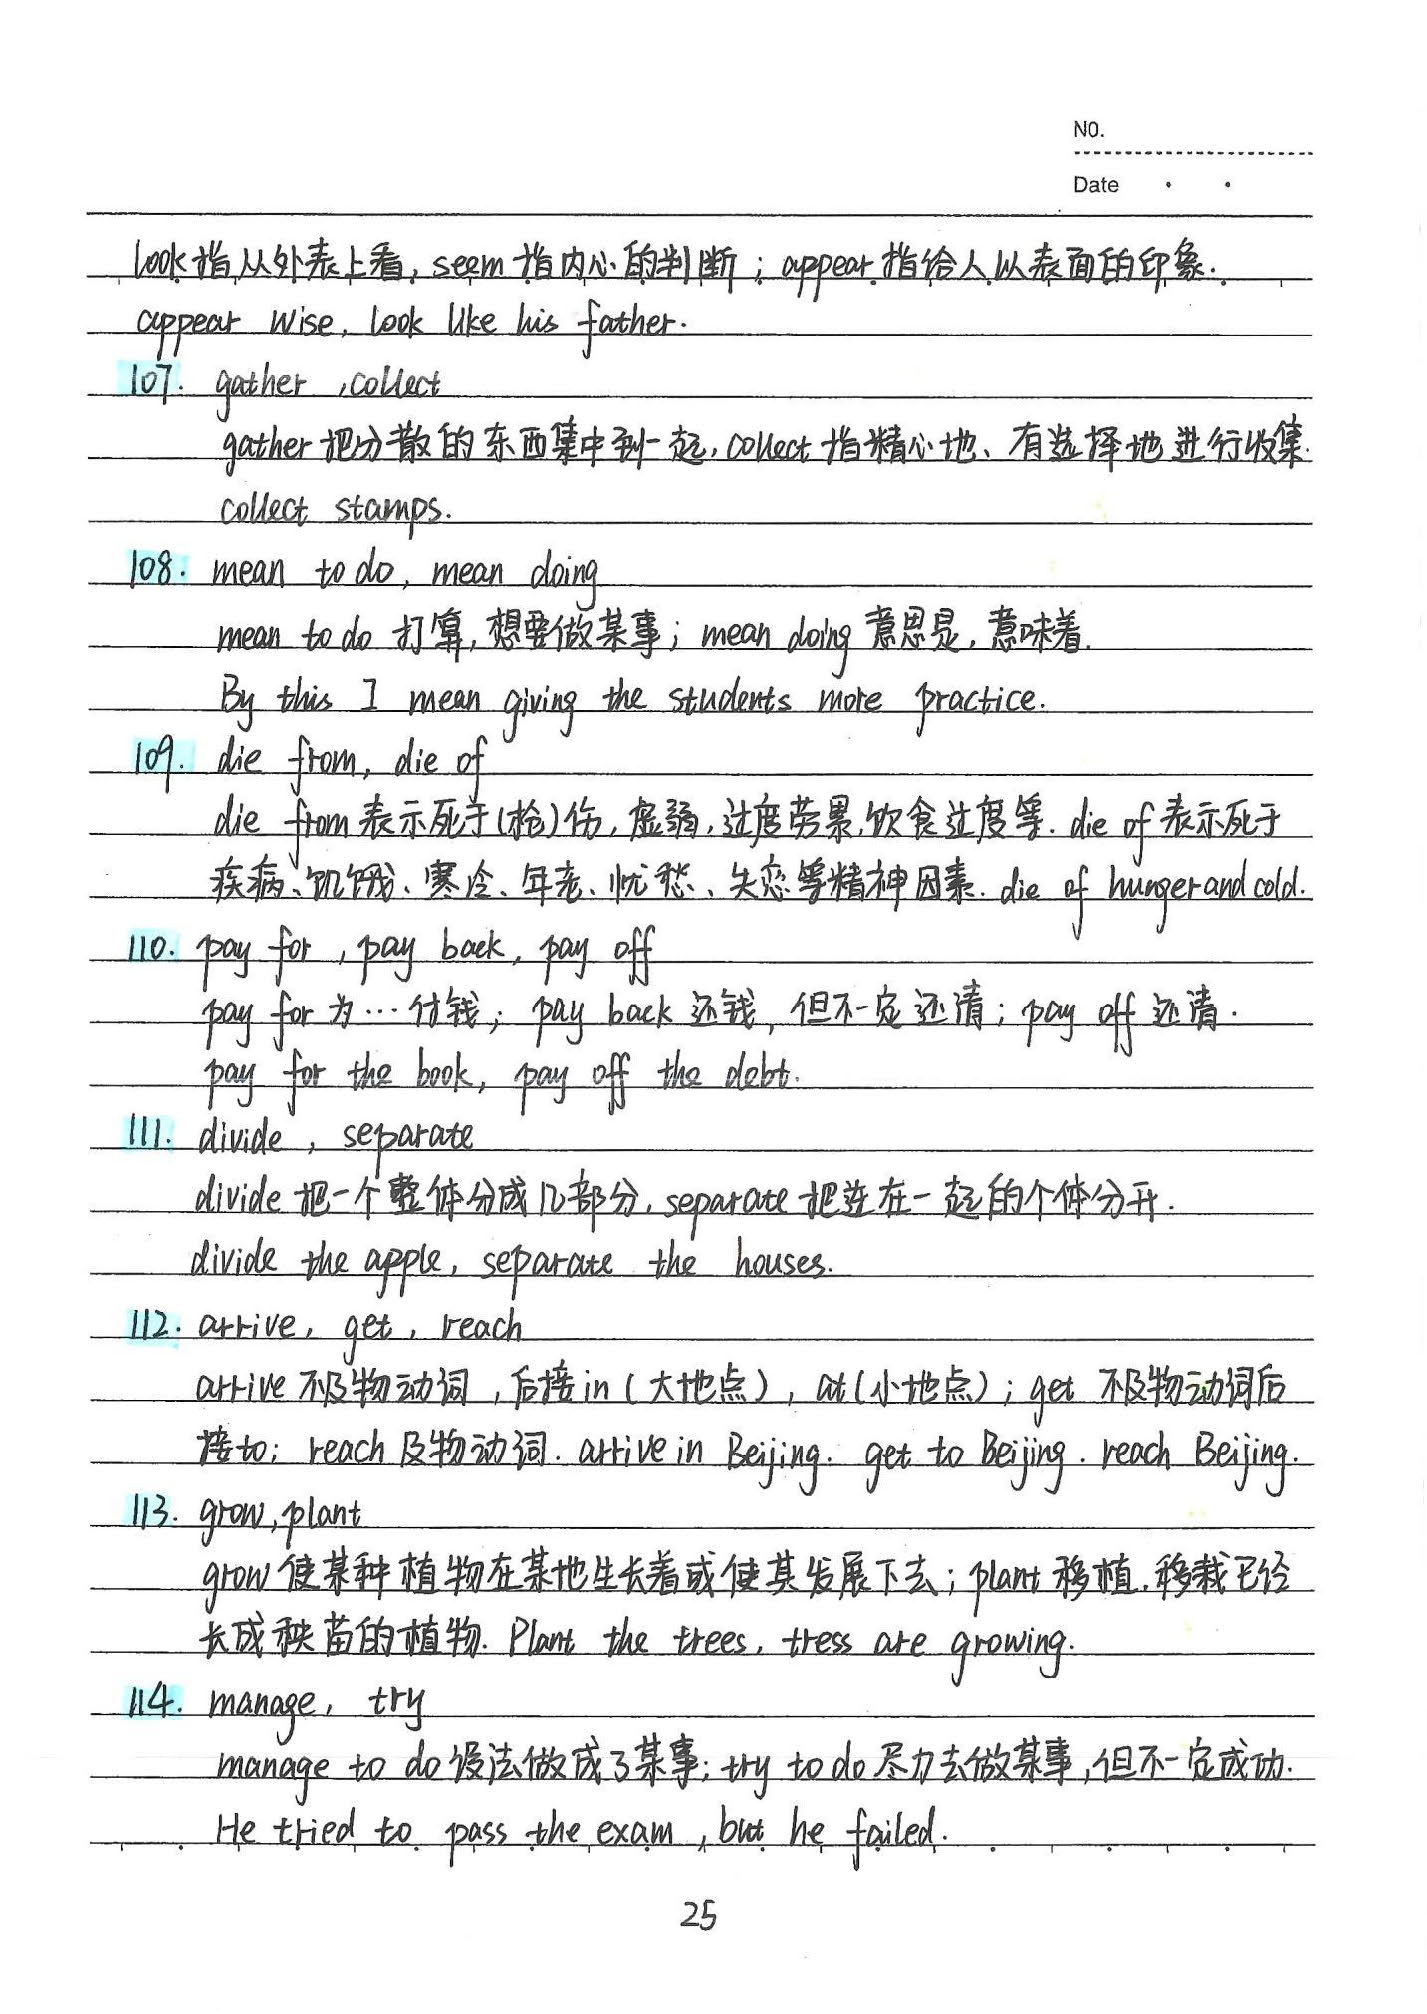 NO.
Date
look指从外表上看, seem指内心的判断; appear指给人以表面的印象.
appear wise, look like his father.
107. gather, collect
gather把分散的东西集中到一起, collect指精心地、有选择地进行收集.
collect stamps.
108. mean to do, mean doing
mean to do 打算, 想要做某事; mean doing 意思是, 意味着.
By this I mean giving the students more practice.
109. die from, die of
die from表示死于(枪)伤, 虚弱, 过度劳累, 饮食过度等. die of 表示死于
疾病、饥饿、寒冷、年老、忧愁、失恋等精神因素. die of hunger and cold.
110. pay for, pay back, pay off
pay for 为…付钱; pay back 还钱, 但不一定还清; pay off 还清.
pay for the book, pay off the debt.
111. divide, separate
divide 把一个整体分成几部分, separate 把连在一起的个体分开.
divide the apple, separate the houses.
112. arrive, get, reach
arrive 不及物动词, 后接in(大地点), at(小地点); get 不及物动词后
接to; reach 及物动词. arrive in Beijing. get to Beijing. reach Beijing.
113. grow, plant
grow 使某种植物在某地生长着或使其发展下去; plant 移植, 移栽已经
长成秧苗的植物. Plant the trees, tress are growing.
114. manage, try
manage to do 设法做成了某事; try to do 尽力去做某事, 但不一定成功.
He tried to pass the exam, but he failed.
25